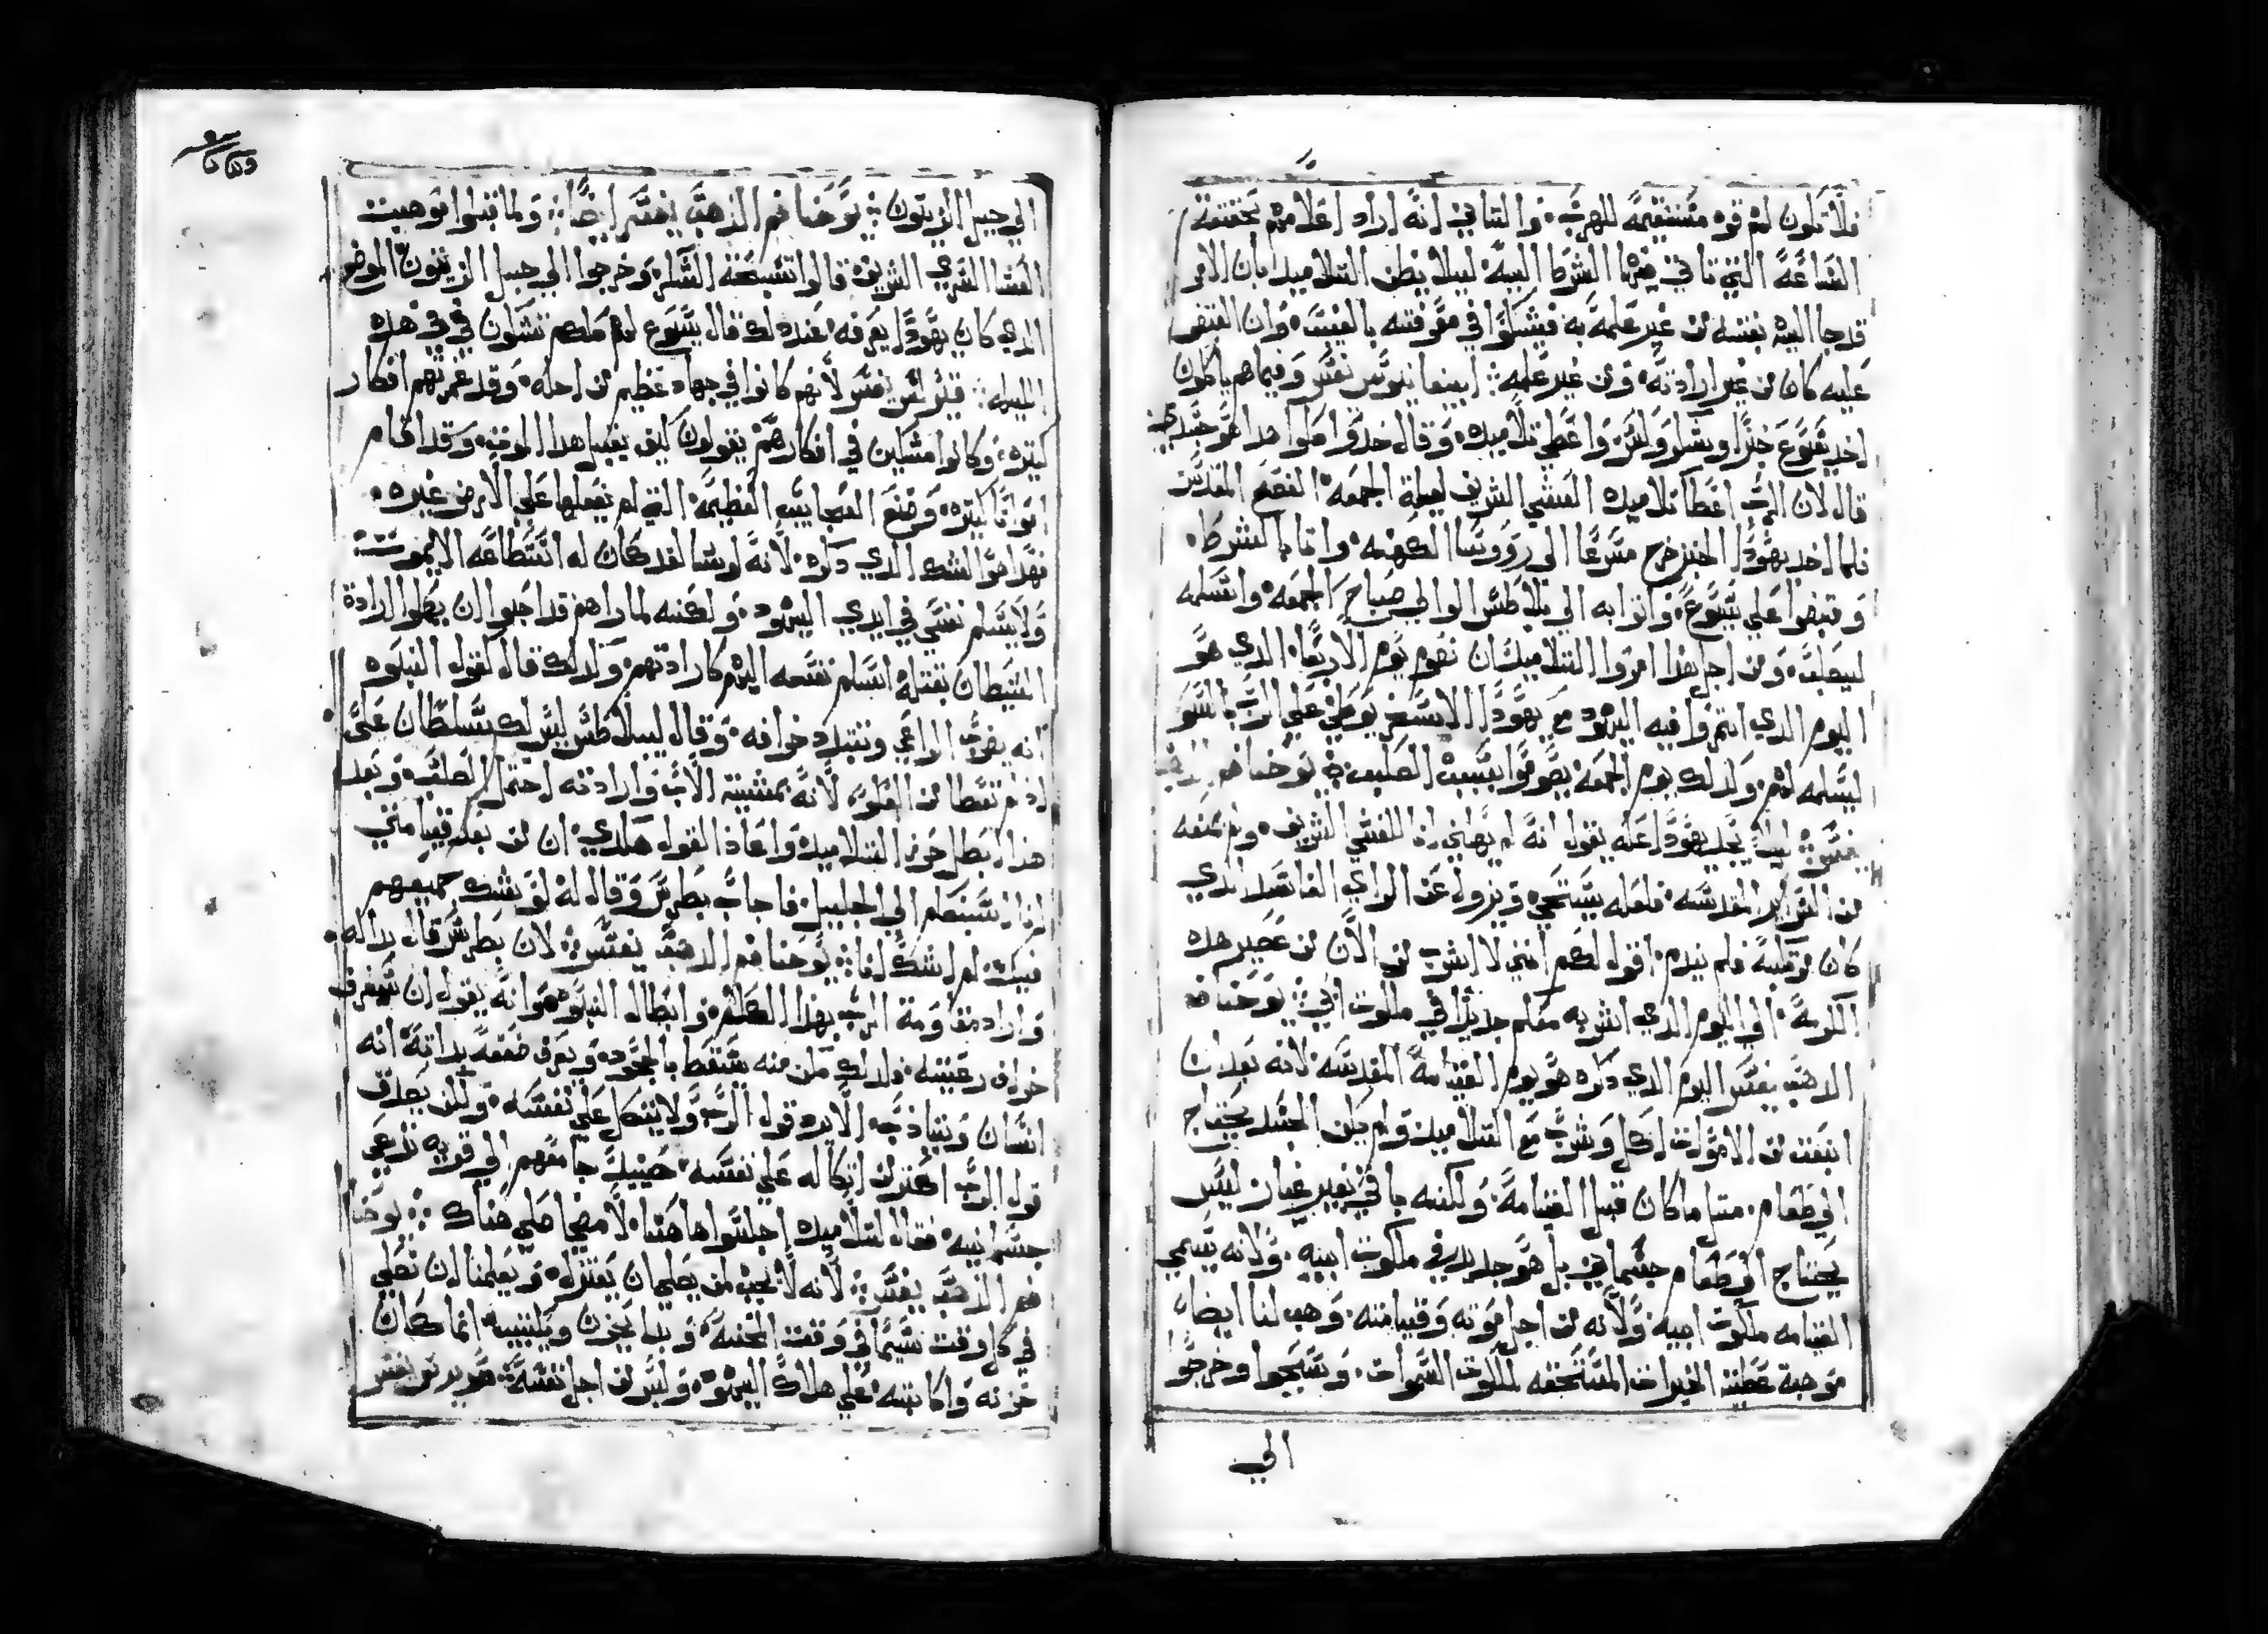 فلا تكون لهم قوه مستقيمة للهرب، والثاني انه اراد اعلامهم بحقيقة
الساعة التي تاتي فيها الشرط اليه ليلا يظن التلاميذ بان الامر
قد جا اليه بغتة من غير علمه به فيشكوا في معرفته بالغيب، وان القبض
عليه كان من غير ارادته، ومن غير علمه ابيفانيوس يفسر وفيما هم ياكلون
اخذ يسوع خبزا وشكر وكسر واعطي تلاميذه وقال خذوا كلوا هذا هو جسدي
قال لان الرب اعطا تلاميذه العشي الشريف ليلة الجمعه الفصح المقدس
فلما اخذ يهودا الخبز خرج مسرعا الي رووسا الكهنه واتا بالشرطه
وقبضوا علي يسوع، واتوا به الي بيلاطس الوالي صباح الجمعه واسلمه
ليصلب، ومن اجل هذا امروا التلاميذ ان نصوم يوم الاربعا، الذي هو
اليوم الذي ائتمروا فيه اليهود مع يهودا الاسخريوطي علي الرب بالسو
ليسلمه لهم، ولذلك يوم الجمعه يصوموا بسبب الصليب يوحنا فم الذهب
يفسر يهودا لعله يقول انه لم يهلني للعشي الشريف، ولم يمنعه
من السراير المقدسه فلعله يستحي ويزول عن الراي الفاسد الذي
كان في قلبه فلم يندم، اقول لكم انني لا اشرب من الان من عصير هذه
الكرمة، الي اليوم الذي اشربه معكم جديدا في ملكوت ابي يوحنا فم
الذهب يفسر اليوم الذي ذكره هو يوم القيامة المقدسه لانه بعد ان
انبعث من الاموات اكل وشرب مع التلاميذ ولم يكن الجسد يحتاج
الي طعام، مثل ما كان قبل القيامة، ولكنه باقي بغير غيار ليس
يحتاج الي طعام جسماني بل هو جديد في ملكوت ابيه، ولانه يسمي
القيامه ملكوت ابيه ولانه من اجل موته وقيامته، وهب لنا ايضا
موهبة عطية الخيرات المستحقه لملكوت السموات، وسبحوا وخرجوا
الي
الي جبل الزيتون يوحنا فم الذهب يفسر ايضا ولما قبلوا توهبت
العشا السري الشريف قالوا تسبحة الشكر، وخرجوا الي جبل الزيتون الموضع
الذي كان يهودا يعرفه، عند ذلك قال يسوع لهم كلكم تشكون في في هذه
الليله يفسر لانهم كانوا في جهاد عظيم من اجله، وقد غمرتهم افكار
كثيره، وكانوا مشككين في افكارهم يقولون كيف يقبل هذا الموت، وقد اقام
امواتا كثيره، وصنع العجايب العظيمة التي لم يفعلها علي الارض غيره
فهذا هو الشك الذي ذكره، لانه لو شا لقد كان له استطاعه الا يموت
ولا يسلم نفسه في ايدي اليهود، ولكنه لما راهم قد احبوا ان يكملوا ارادة
الشيطان بقتله اسلم نفسه اليهم كارادتهم، ولذلك قال لقول النبوه
انه يضرب الراعي وتتبدد خرافه، وقال لبيلاطس ليس لك سلطان علي
اذ لم تعطا من العلو، لانه بمشيئة الاب وارادته احتمل الصلب، وبعد
هذا ابطل حزن التلاميذ واعاد القول هكذي، ان من بعد قيامتي
انا اسبقكم الي الجليل، فاجاب بطرس وقال له لو يشك جميعهم
فيك لم اشك انا يوحنا فم الذهب يفسر لان بطرس قال بداله
واراد مقاومة الرب بهذا الكلام، وابطال النبوه هو انه يقول ان تتفرق
خراف رعيته، فلذلك مكن منه سقط بالجحود، ويعرف ضعفه بذاته انه
انسان ويتادب، الا يرد قول الرب ولا يتكل علي نفسه، ولكن يصدق
قول الرب اكثر من اتكاله علي نفسه، حينيذ جا معهم الي قريه تدعي
جسمانيه، فقال لتلاميذه اجلسوا هاهنا، لامضي اصلي هناك يوحنا
فم الذهب يفسر لانه لا يحب لمن يصلي ان يعتزل، ويعلمنا ان نصلي
في كل وقت سيما في وقت المحنة، وبدا يحزن ويكتيب، انما كان
حزنه واكتابه علي هلاك اليهود، وليس من اجل نفسه